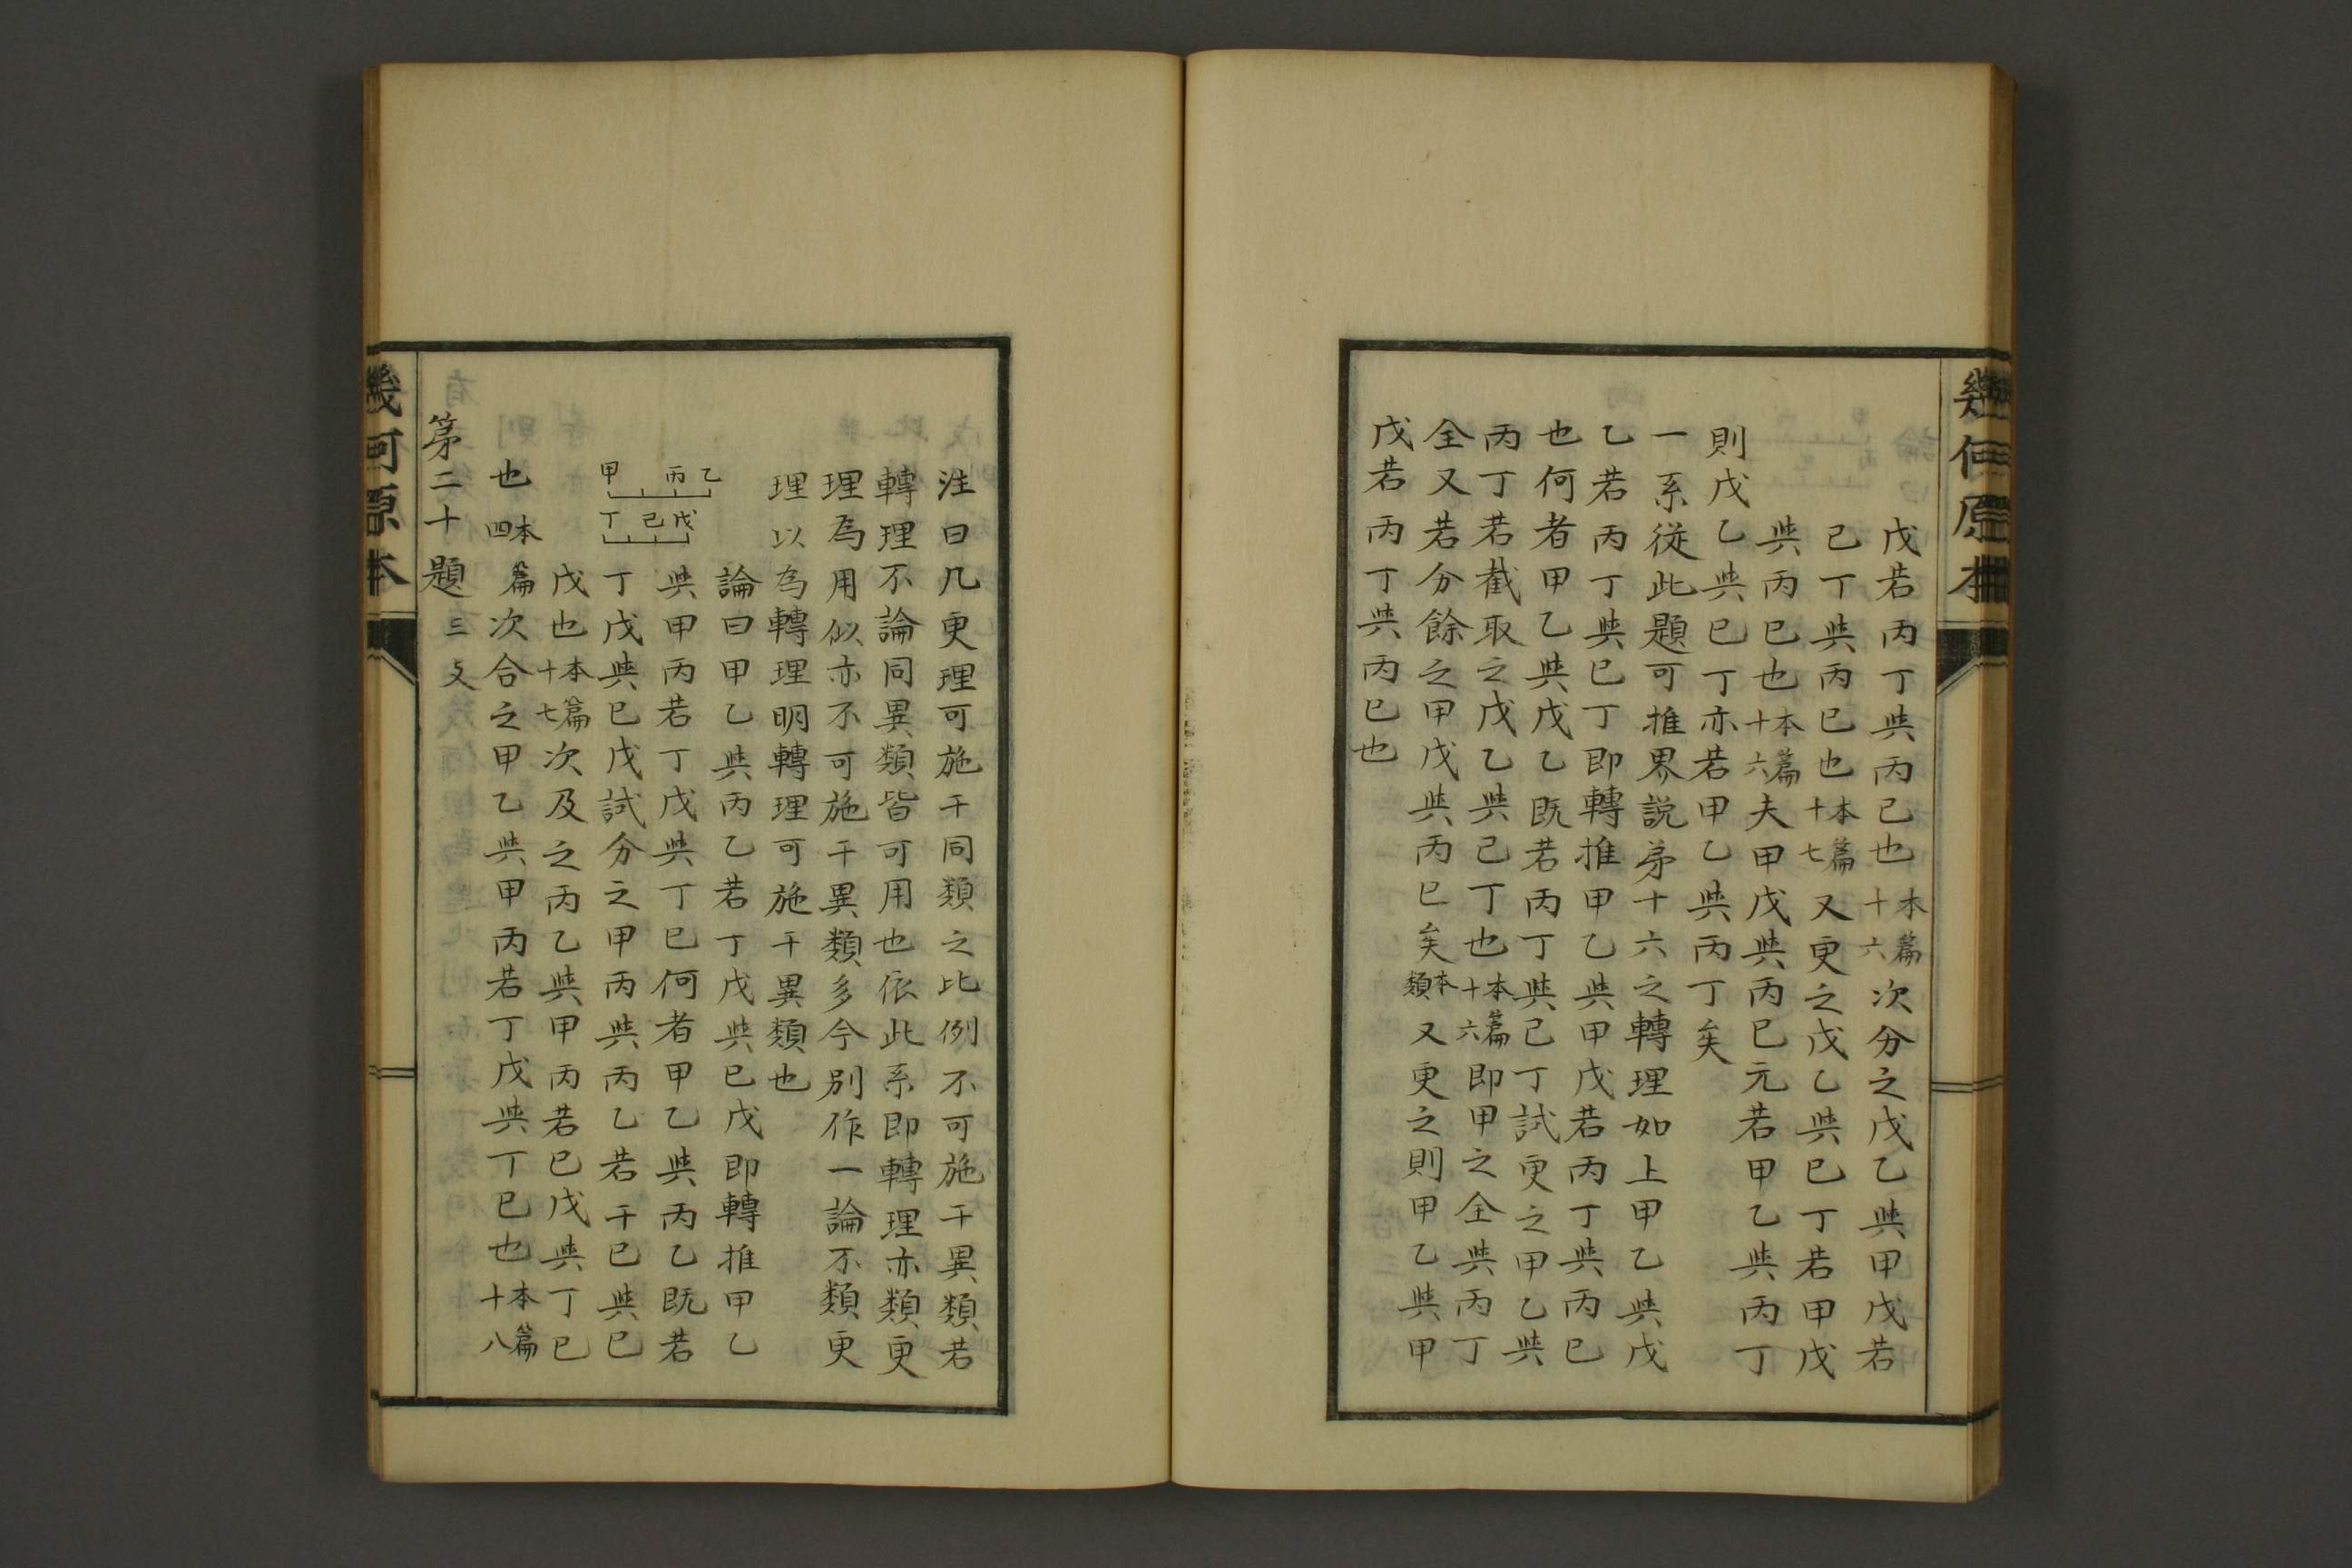 幾何原本
戊若丙丁與丙己也本篇十六次分之戊乙與甲戊若
己丁與丙己也本篇十七又更之戊乙與己丁若甲戊
與丙己也本篇十六夫甲戊與丙己元若甲乙與丙丁
則戊乙與己丁亦若甲乙與丙丁矣
一系從此題可推界説第十六之轉理如上甲乙與戊
乙若丙丁與己丁即轉推甲乙與甲戊若丙丁與丙己
也何者甲乙與戊乙既若丙丁與己丁試更之甲乙與
丙丁若截取之戊乙與己丁也本篇十六即甲之全與丙丁
全又若分餘之甲戊與丙己矣本類又更之則甲乙與甲
戊若丙丁與丙己也
注曰凡更理可施于同類之比例不可施于異類若
轉理不論同異類皆可用也依此系即轉理亦類更
理為用似亦不可施于異類多今别作一論不類更
理以為轉理明轉理可施于異類也
甲 丙 乙
丁 己 戊
論曰甲乙與丙乙若丁戊與己戊即轉推甲乙
與甲丙若丁戊與丁己何者甲乙與丙乙既若
丁戊與己戊試分之甲丙與丙乙若于己與己
戊也本篇十七次及之丙乙與甲丙若己戊與丁己
也本篇四次合之甲乙與甲丙若丁戊與丁己也本篇十八
第二十題三支
幾何原本